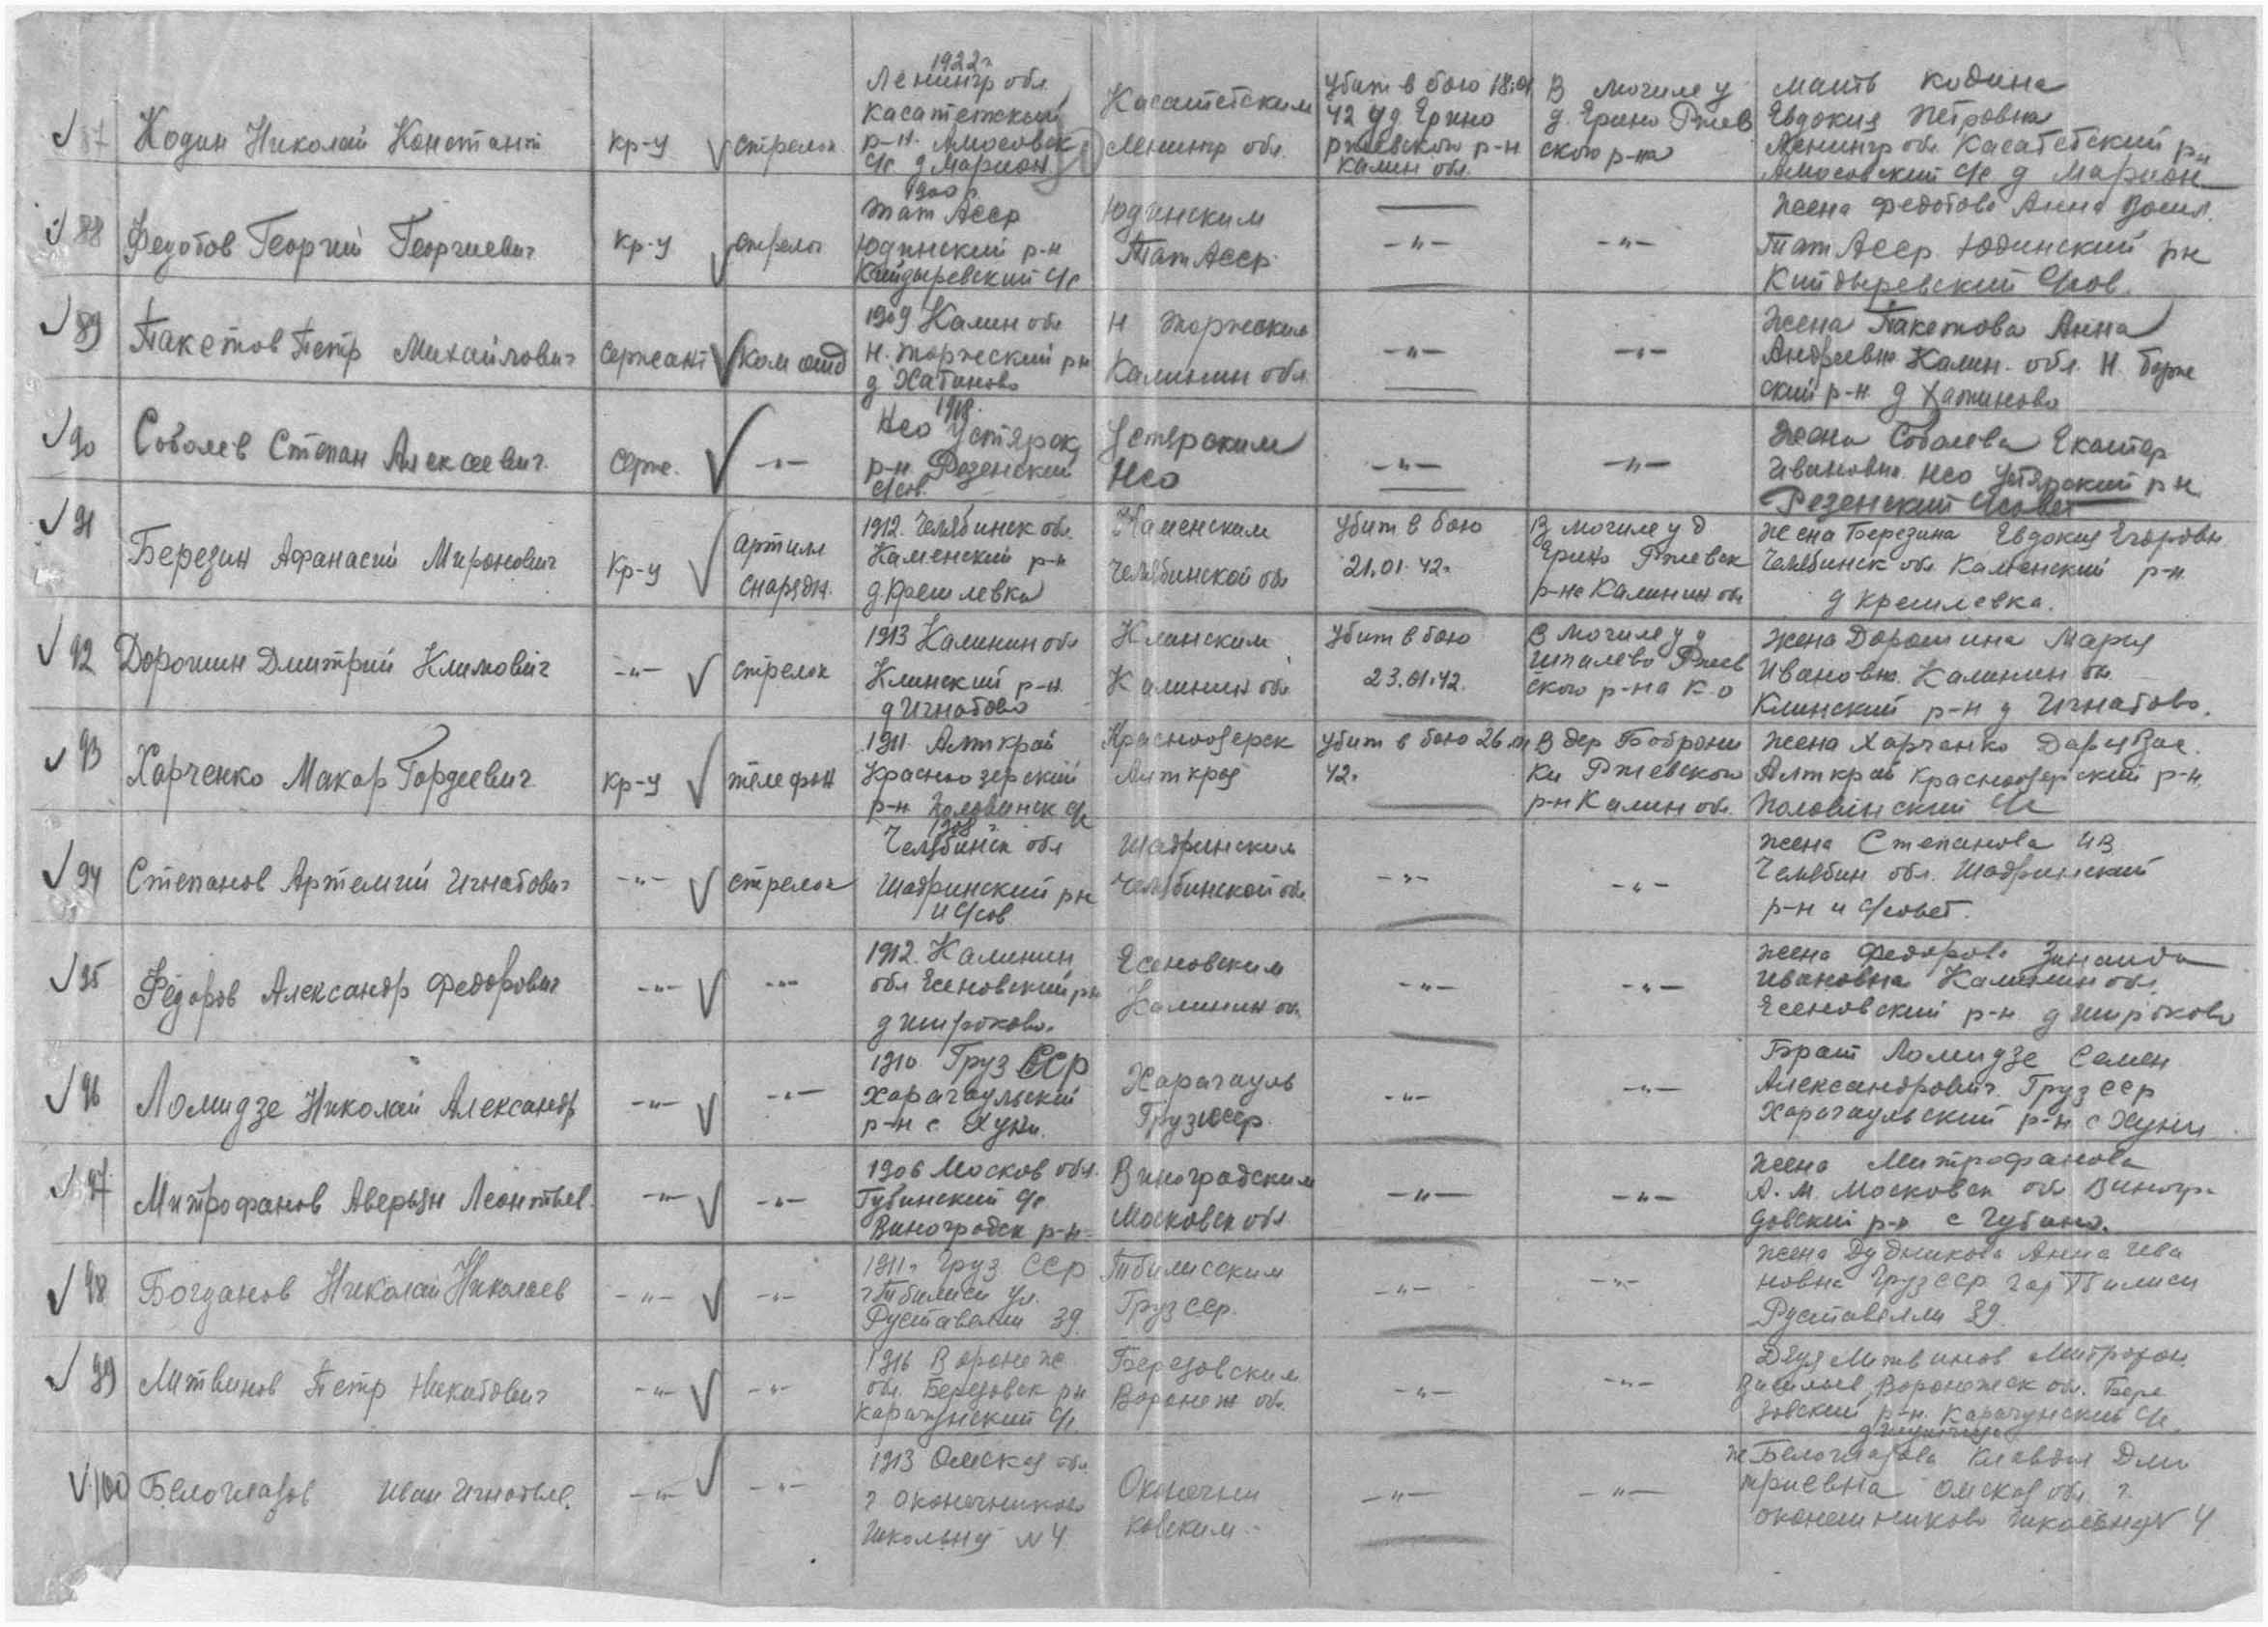 87 Кодин Николай Констант кр-ц стрелок 1922г Ленингр обл. Касатежский р-н. Амосовск с/с д Марион Касатетским Ленингр обл. Убит в бою 18.01 42 у д. Ерино ржевского р-н Калин обл. В могиле у д. Ерино Ржев ского р-на мать Кодина Евдокия Петровна Ленингр обл Касатетский р-н Амосовский с/с д Марион
88 Федотов Георгий Георгиевич кр-ц стрелок 1900 г Тат Асср Юдинский р-н Киндыревский с/с Юдинским Тат Асср -"- -"- Жена Федотова Анна Васил. Тат Асср Юдинский рн Киндыревский с/сов.
89 Пакетов Петр Михайлович Сержант Ком отд 1909 Калин обл Н. Торжеский рн д Хатиново Н Торжеским Калинин обл -"- -"- Жена Пакетова Анна Андреевн Калин. обл. Н. Торже ский р-н д Хатиново
90 Соболев Степан Алексеевич. Серж. -"- 1918. Нсо Устярск р-н Резенский с/сов. Устярским Нсо -"- -"- Жена Соболева Екатер Ивановна Нсо Устярский рн Резенский с/совет
91 Березин Афанасий Миронович Кр-ц артилл снарядн. 1912. Челябинск обл. Каменский р-н д. Крешлевка Каменским Челябинской обл Убит в бою 21.01.42г В могиле у д Ерино Ржевск р-на Калинин обл Жена Березина Евдокия Егоровн Челябинск обл Каменский р-н д Крешлевка.
92 Дорошин Дмитрий Климович -"- стрелок 1913 Калинин обл Клинский р-н. д Игнатово Клинским Калинин обл Убит в бою 23.01.42. В могиле у д Шпалево Ржев ского р-на К о Жена Дорошина Мария Ивановн. Калинин обл. Клинский р-н д Игнатово.
93 Харченко Макар Гордеевич Кр-ц телефон 1911. Алт край Краснозерский р-н Половинск с/с Краснозерск Алт края Убит в бою 26.01 42г В дер Бобронки Ржевского р-н Калин обл. Жена Харченко Дарья Вас. Алт край Краснозерский р-н. Половинский с/с
94 Степанов Артемий Игнатович -"- стрелок 1908 Челябинск обл Шадринский рн И с/сов Шадринским Челябинской обл -"- -"- Жена Степанова ИВ Челябин обл. Шадринский р-н и с/совет.
95 Фёдоров Александр Федорович -"- -"- 1912. Калинин обл Есеновский рн д Широково. Есеновским Калинин обл -"- -"- Жена Федорова Зинаида Ивановна Калинин обл. Есеновский р-н д Широково
96 Ломидзе Николай Александр -"- -"- 1910 Груз ССР Харагаульский р-н с. Хуни. Харагауль Груз ССР -"- -"- Брат Ломидзе Семен Александрович Груз ССР Харагаульский р-н с Хуни
97 Митрофанов Аверьян Леонтьев. -"- -"- 1906 Москов обл. Губинский с/с Виноградск р-н Виноградским Московск обл -"- -"- Жена Митрофанова А. М. Московск обл Виногра довский р-н с Губино.
98 Богданов Николай Николаев -"- -"- 1911г Груз ССР г Тбилиси ул. Руставелли 39. Тбилисским Груз ССР. -"- -"- Жена Дудникова Анна Ива новна Груз ССР гор Тбилиси Руставелли 39.
99 Литвинов Петр Никитович -"- -"- 1916 Воронеж обл. Березовск рн Карачунский с/с Березовским Воронеж обл. -"- -"- Дядя Литвинов Митрофан Васильев Воронежск обл. Бере зовский р-н. Карачунский с/с
100 Белоглазов Иван Игнатьев. -"- -"- 1913 Омская обл г Оконечниково Школьная N 4 Оконечни ковским -"- -"- Ж Белоглазова Клавдия Дми триевна Омская обл. г. Оконешниково Школьная N 4